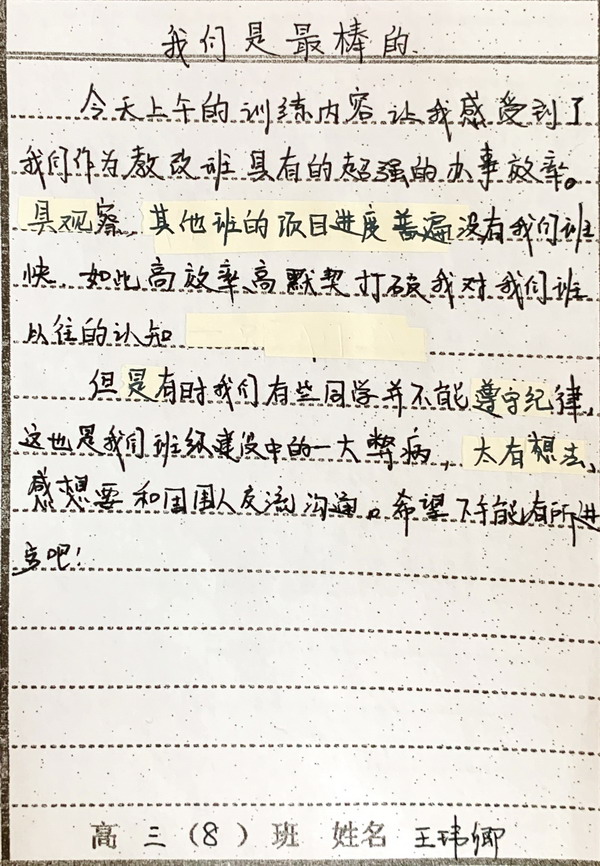 我们是最棒的.
今天上午的训练内容让我感受到了
我们作为教改班具有的超强的办事效率。
具观察,其他班的项目进度普遍没有我们班
快,如此高效率、高默契打破我对我们班
以往的认知
但是有时我们有些同学并不能遵守纪律,
这也是我们班级建设中的一大弊病,太有想法、
感想要和周围人交流沟通。希望下午能有所进
步吧!
高三(8)班 姓名 王玮卿